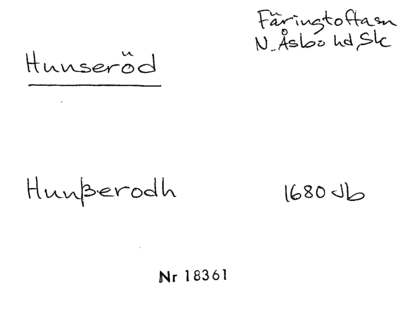 Färingtofta sn
N. Åsbo hd, Sk
Hunseröd
Hunßerodh
1680 Jb
Nr 18361